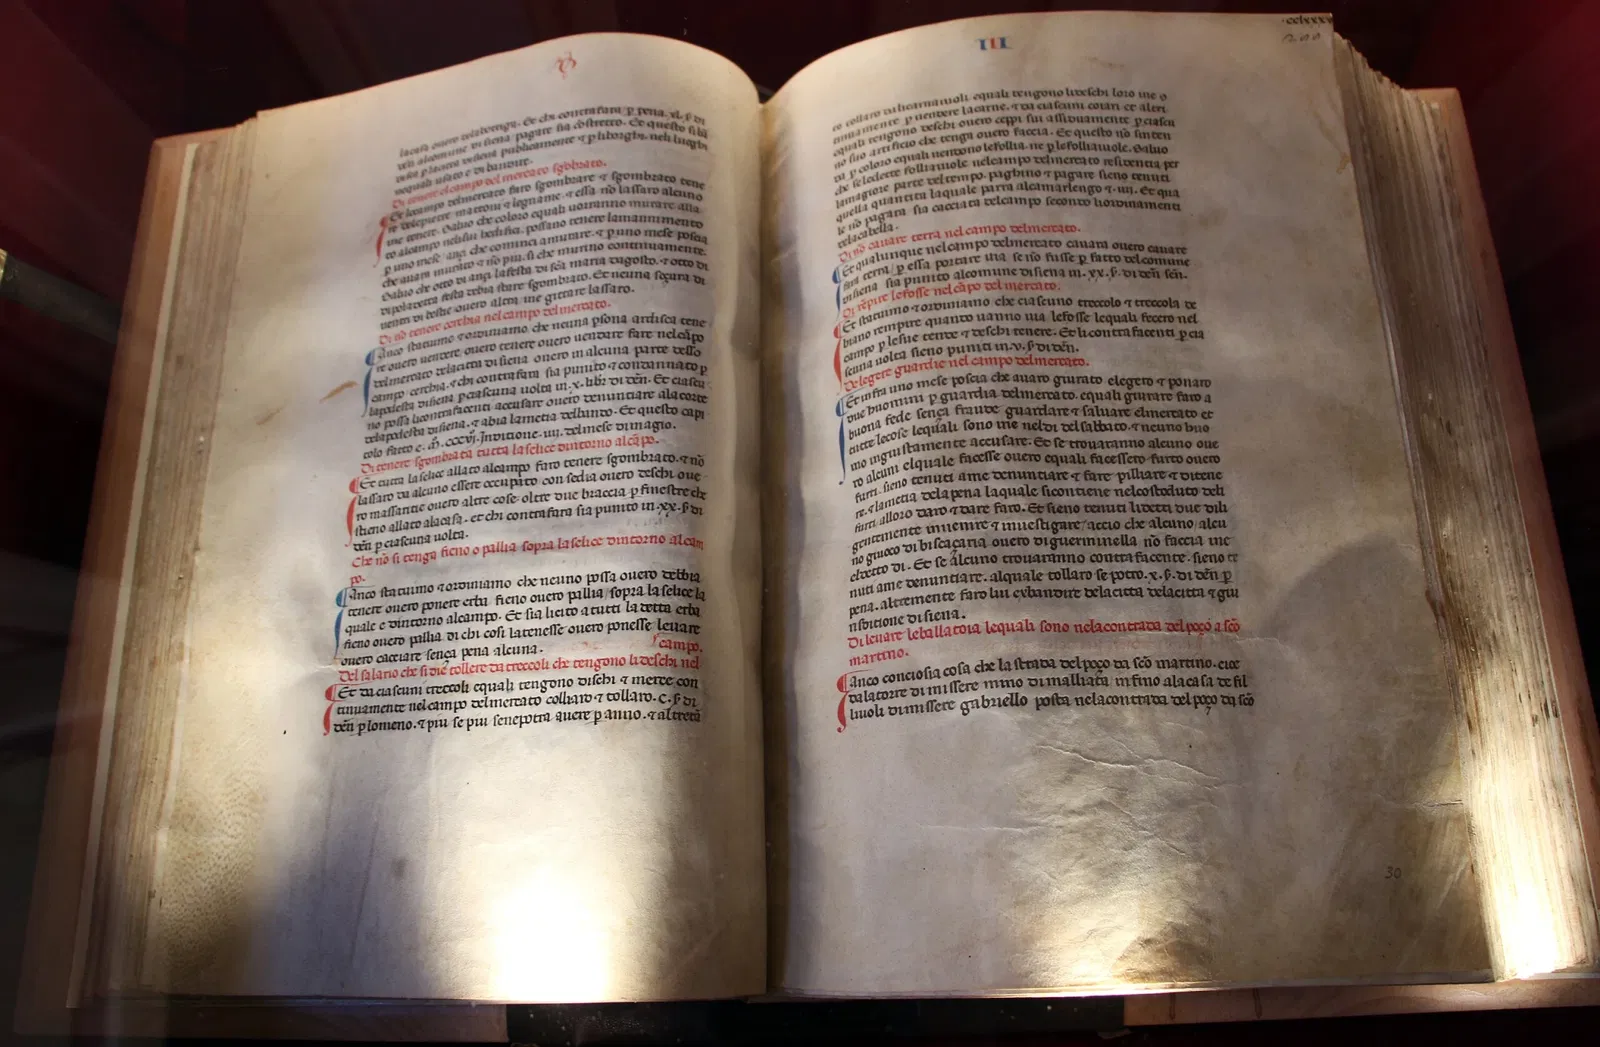 la casa ouero dela botega. Et chi contrafara p̱ pena .xl. ꝟ. di
den̄ al comune di siena pagare sia cōstretto. Et questo si bā
disca p̱ la citta di siena publicamente ⁊ p̱ li borghi. neli luoghi
nequali usato e di bandire.
Di tenere el campo del mercato sgōbrato.
Et lo campo del mercato faro sgombrare ⁊ sgombrato tene
re dele pietre mattoni ⁊ legname. ⁊ essa nō lassaro alcuno
ine tenere. Saluo che coloro equali uorranno murare alla
to al campo neli sui hedifici. possano tenere lamannimento
p̱ uno mese anzi che cominci a murare. ⁊ p̱ uno mese poscia
che auara murato ⁊ nō piu. si che murino continuamente.
Saluo che otto di anzi la festa di sc̄a maria dagosto. ⁊ otto di
di po la detta festa debia stare sgombrato. Et neuna sozura di
uentri di bestie ouero altra ine gittare lassaro.
Di nō tenere cerchia nel campo del mercato.
Anco statuimo ⁊ ordiniamo. che neuna p̱sona ardisca tene
re ouero uendere. ouero tenere ouero uendare fare nel cāpo
del mercato dela citta di siena ouero in alcuna parte desso
campo cerchia. ⁊ chi contrafara sia punito ⁊ condannato p̱
la podesta di siena p̱ ciascuna uolta in .x. libr̄ di den̄. Et ciascu
no possa li contrafacenti accusare ouero denuntiare ala corte
dela podesta di siena. ⁊ abia la meta del bando. Et questo capi
tolo fatto e. a. m̄. cccvj. Inditione .iiij. del mese di magio.
Di tenere sgombrata tutta la selice dintorno al cāpo.
Et tutta la selice allato al campo faro tenere sgombrato. ⁊ nō
lassaro da alcuno essere occupato con sedia ouero deschi oue
ro massaritie ouero altre cose. oltre due braccia p̱ finestre che
stieno allato ala casa. et chi contrafara sia punito in .xx. ꝟ. di
den̄ p̱ ciascuna uolta.
Che nō si tenga fieno o pallia sopra la selice dintorno al cam
po.
Anco statuimo ⁊ ordiniamo che neuno possa ouero debbia
tenere ouero ponere erba. fieno ouero pallia sopra la selice la
quale e dintorno al campo. Et sia licito a tutti la detta erba
fieno ouero pallia di chi cosi la tenesse ouero ponesse leuare
ouero cacciare senza pena alcuna.
campo.
Del salario che si die tollere da treccoli che tengono li deschi nel
Et da ciascuni treccoli equali tengono dischi ⁊ merce con
tinuamente nel campo del mercato colliaro ⁊ tollaro .c. ꝟ. di
den̄ p̱ lo meno. ⁊ piu se piu sene potra auere p̱ anno. ⁊ altretā
III
·cclxxx
to collaro da li
equali tengono li deschi loro ine o
tinuamente p̱ uendere la carne. ⁊ da ciascuni coiari et altri
equali tengono deschi ouero ceppi sui assiduamente p̱ ciascu
no suo artificio che tenga ouero faccia. Et questo nō sinten
da p̱ coloro equali uendono le follia. ne p̱ le folliaiuole. Saluo
che se le dette folliaiuole nel campo del mercato residentia per
la magiore parte del tempo. paghino ⁊ pagare sieno tenuti
quella quantita la quale parra al camarlengo ⁊ .iiij. Et qua
le nō pagara sia cacciata del campo secondo li ordinamenti
dela cabella.
Di nō cauare terra nel campo del mercato.
Et qualunque nel campo del mercato cauara ouero cauare
fara terra. p̱ essa portare uia se nō fusse p̱ fatto del comune
di siena sia punito al comune di siena in .xx. ꝟ. di den̄ sen̄.
Di rēpire le fosse nel cāpo del mercato.
Et statuimo ⁊ ordiniamo che ciascuno treccolo ⁊ treccola de
biano rempire quanto uanno uia le fosse lequali fecero nel
campo p̱ le sue tende ⁊ deschi tenere. Et li contrafacenti p̱ cia
scuna uolta sieno puniti in .v. ꝟ. di den̄.
De legere guardie nel campo del mercato.
Et infra uno mese poscia che auaro giurato elegero ⁊ ponaro
due buomini p̱ guardia del mercato. equali giurare faro a
buona fede senza fraude guardare ⁊ saluare el mercato et
tutte le cose lequali sono ine nel di del sabbato. ⁊ neuno huo
mo ingiustamente accusare. Et se trouaranno alcuno oue
ro alcuni elquale facesse ouero equali facessero furto ouero
furti. sieno tenuti a me denuntiare ⁊ fare pilliare ⁊ ditene
re. ⁊ la meta dela pena laquale si contiene nel costoduto deli
furti. alloro daro ⁊ dare faro. Et sieno tenuti li detti due dili
gentemente inuenire ⁊ inuestigare. accio che alcuno alcu
no giuoco di biscazaria ouero di guerminella nō faccia ine
el detto di. Et se alcuno trouaranno contrafacente. sieno te
nuti a me denuntiare. al quale tollaro se potro .x. ꝟ. di den̄ p̱
pena. altremente faro lui exbandire dela citta dela citta ⁊ giu
risditione di siena.
Di leuare le ballatoia lequali sono nela contrada del pozo a sc̄o
martino.
Anco conciosia cosa che la strada del pozo da sc̄o martino. cioe
dala torre di missere mino di malliata infino ala casa de fil
liuoli di missere gabriello posta nela contrada del pozo da sc̄o
30